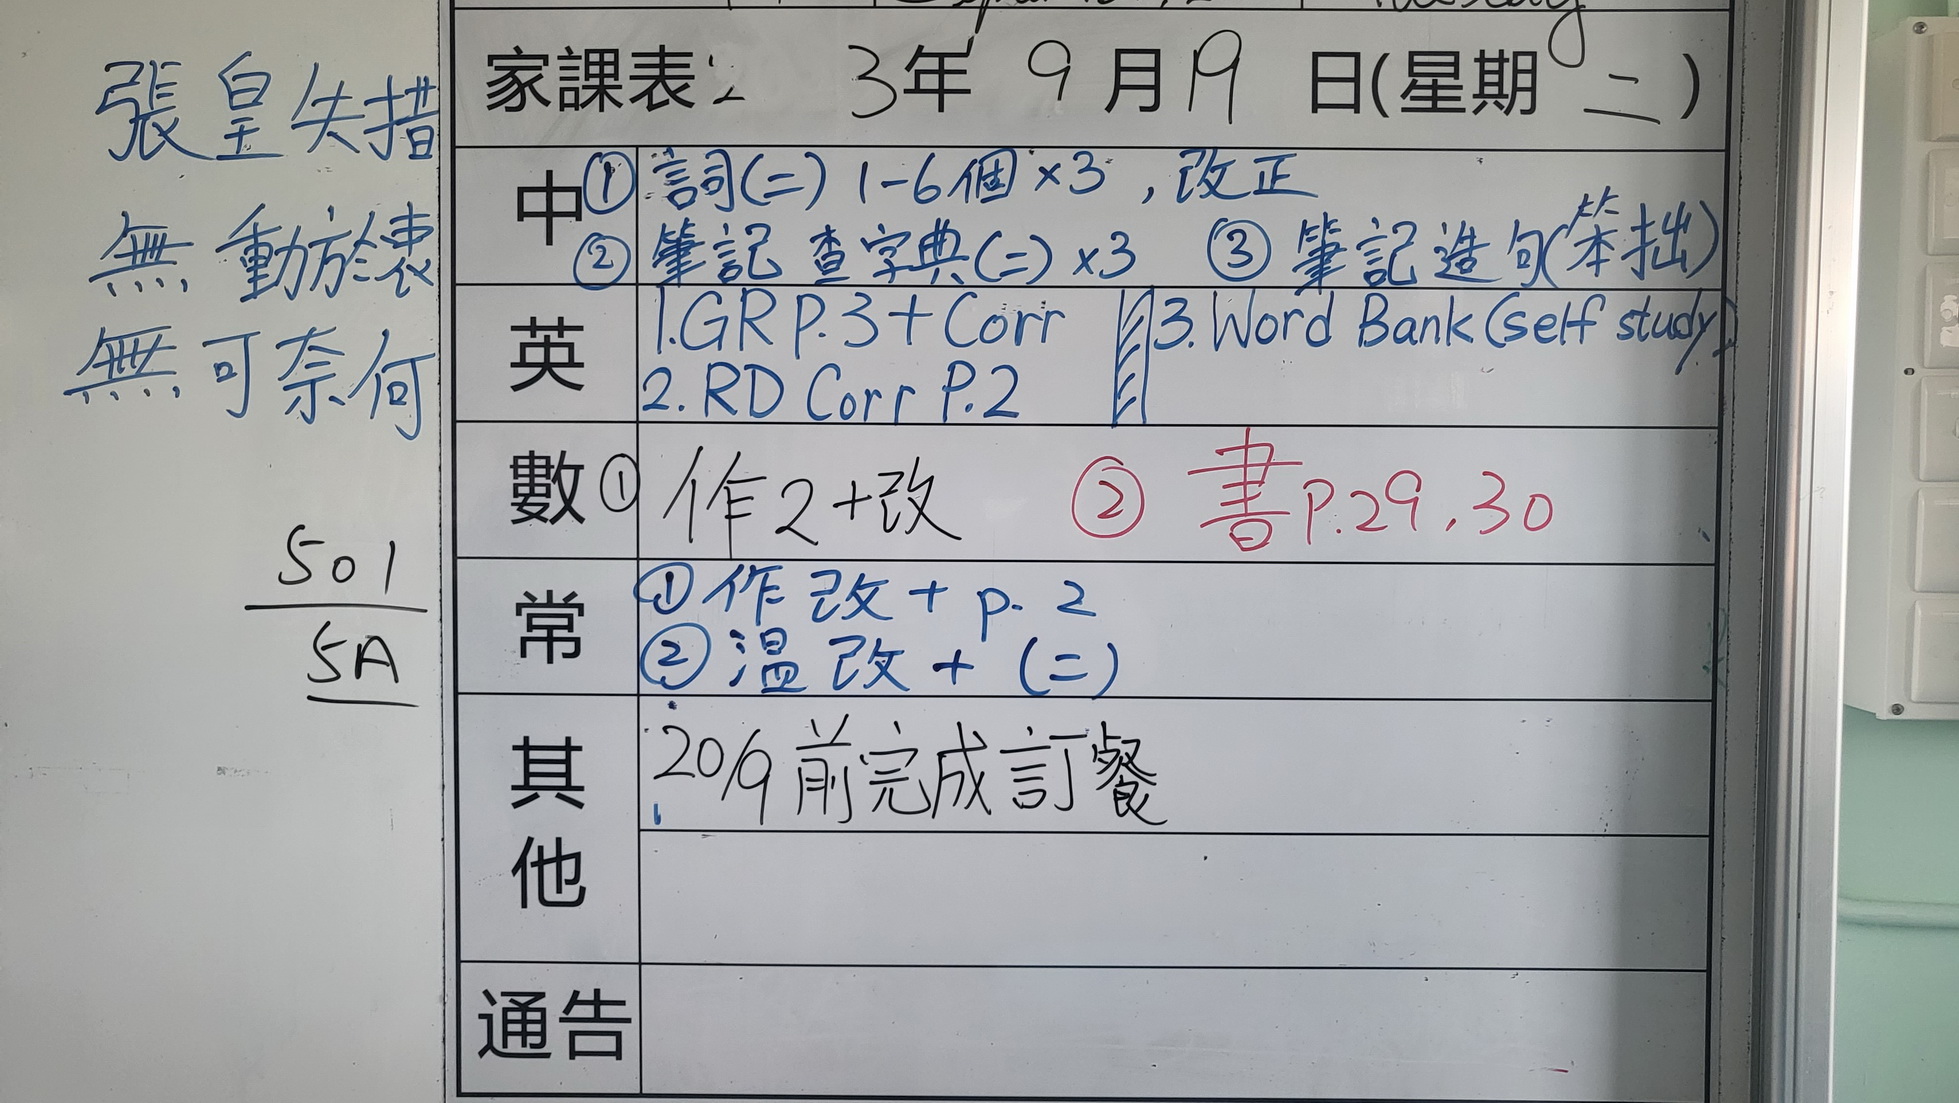 家課表 2 3年 9月19日(星期二)
張皇失措
無動於衷
無可奈何
501
5A
中 ① 詞(二) 1-6個×3，改正
② 筆記 查字典(二)×3 ③ 筆記造句(笨拙)
英 1.GR P.3+Corr 3. Word Bank (self study)
2. RD Corr P.2
數 ① 作2+改 ② 書P.29,30
常 ① 作改+p. 2
② 溫改+(二)
其他 20/9前完成訂餐
通告